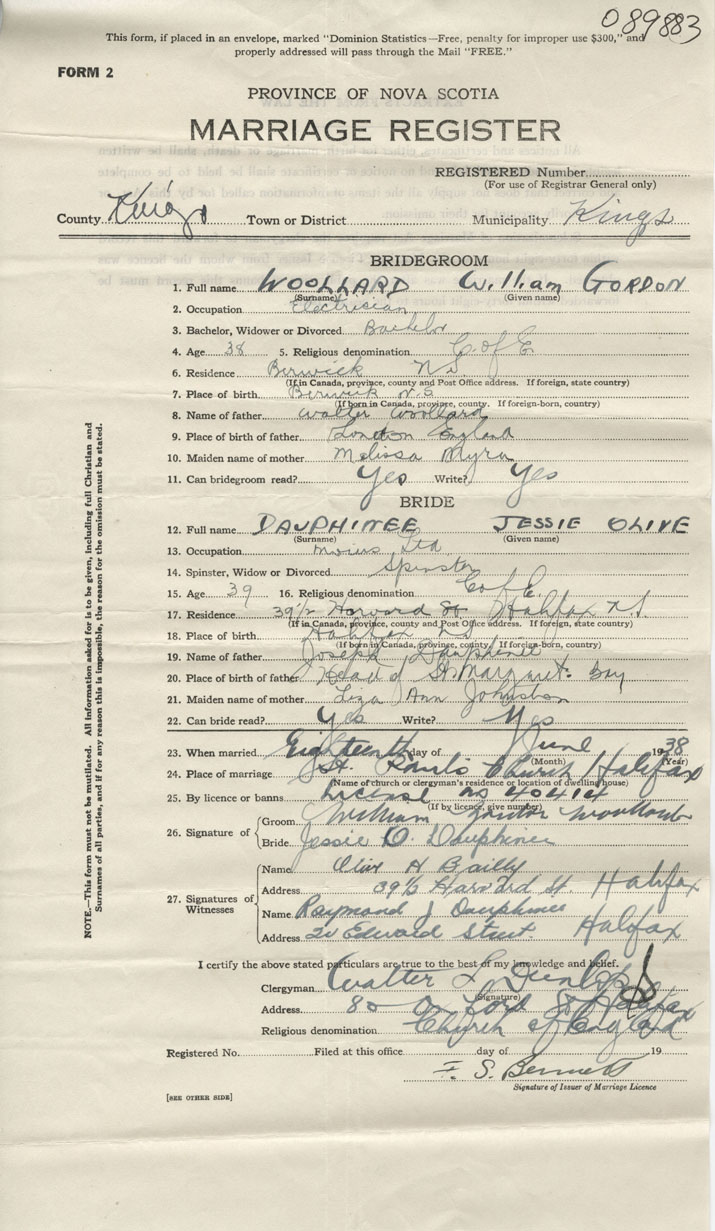 089883
This form, if placed in an envelope, marked "Dominion Statistics—Free, penalty for improper use $300," and
properly addressed will pass through the Mail "FREE."
FORM 2
PROVINCE OF NOVA SCOTIA
MARRIAGE REGISTER
REGISTERED Number
(For use of Registrar General only)
County Kings Town or District Municipality Kings
BRIDEGROOM
1. Full name WOOLLARD William GORDON
(Surname) (Given name)
2. Occupation Electrician
3. Bachelor, Widower or Divorced Bachelor
4. Age 38 5. Religious denomination C. of E.
6. Residence Berwick N S
(If in Canada, province, county and Post Office address. If foreign, state country)
7. Place of birth Berwick N.S.
(If born in Canada, province, county. If foreign-born, country)
8. Name of father Walter Woollard
9. Place of birth of father London England
10. Maiden name of mother Melissa Myra
11. Can bridegroom read? Yes Write? Yes
BRIDE
12. Full name DAUPHINEE JESSIE OLIVE
(Surname) (Given name)
13. Occupation Ltd
14. Spinster, Widow or Divorced Spinster
15. Age 39 16. Religious denomination C of E.
17. Residence 39 1/2 Harvard St Halifax N.S.
(If in Canada, province, county and Post Office address. If foreign, state country)
18. Place of birth Halifax N S
(If born in Canada, province, county. If foreign-born, country)
19. Name of father Joseph Dauphinee
20. Place of birth of father Head of St. Margaret. Bay
21. Maiden name of mother Liza Ann Johnston
22. Can bride read? Yes Write? Yes
23. When married Eighteenth day of June 1938
(Month) (Year)
24. Place of marriage St. Paul's Church Halifax
(Name of church or clergyman's residence or location of dwelling house)
25. By licence or banns License no
(If by licence, give number)
26. Signature of
Groom William Gordon Woollard
Bride Jessie O. Dauphinee
27. Signatures of Witnesses
Name Olive H Bailly
Address 39 1/2 Harvard St. Halifax
Name Raymond J Dauphinee
Address Edward Street Halifax
I certify the above stated particulars are true to the best of my knowledge and belief.
Clergyman Walter L Dunlop
(Signature)
Address Halifax
Religious denomination Church of England
Registered No. Filed at this office day of 19
F. S. Bennett
Signature of Issuer of Marriage Licence
[SEE OTHER SIDE]
NOTE.—This form must not be mutilated. All information asked for is to be given, including full Christian and
Surnames of all parties, and if for any reason this is impossible, the reason for the omission must be stated.